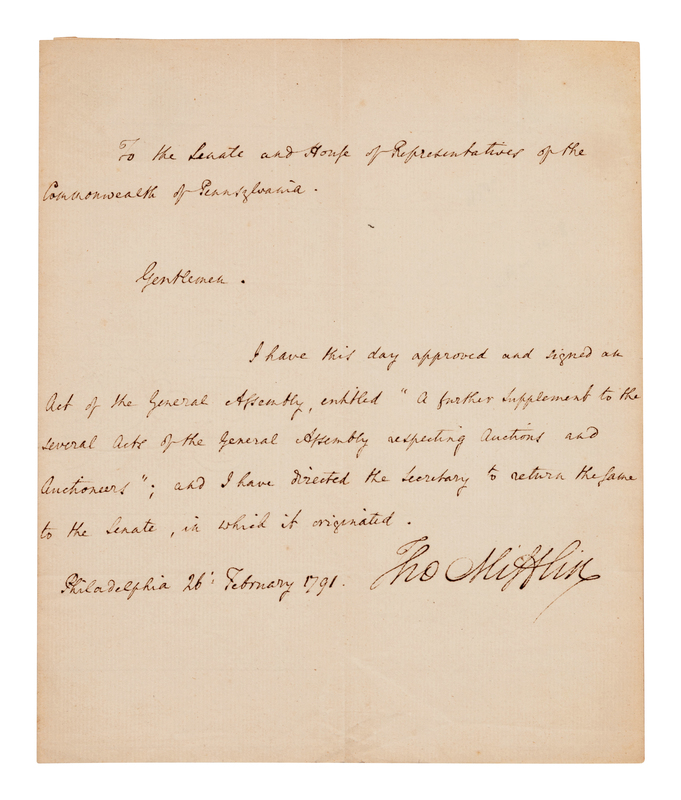 To the Senate and House of Representatives of the
Commonwealth of Pennsylvania.
Gentlemen.
I have this day approved and signed an
Act of the General Assembly, entitled "A further Supplement to the
several Acts of the General Assembly respecting Auctions and
Auctioneers"; and I have directed the Secretary to return the same
to the Senate, in which it originated.
Philadelphia 26: February 1791. Tho Mifflin